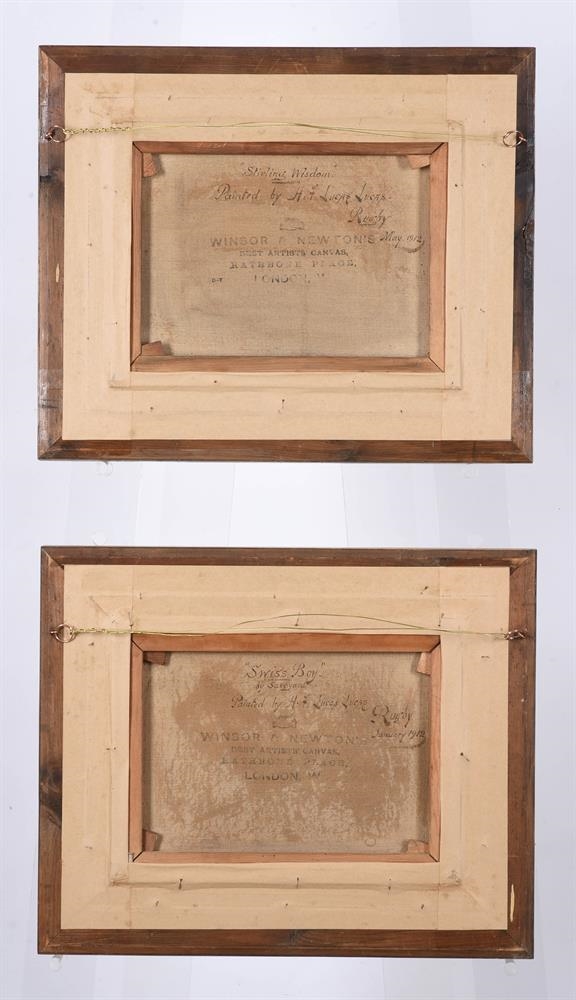 "Stirling Wisdom"
Painted by H.F. Lucas Lucas
Rugby
May. 1912
WINSOR & NEWTON'S
BEST ARTISTS' CANVAS,
RATHBONE PLACE,
LONDON, W
"Swiss Boy"
by Savoyard
Painted by H.F. Lucas Lucas
Rugby
January 1912
WINSOR & NEWTON'S
BEST ARTISTS' CANVAS,
RATHBONE PLACE,
LONDON, W